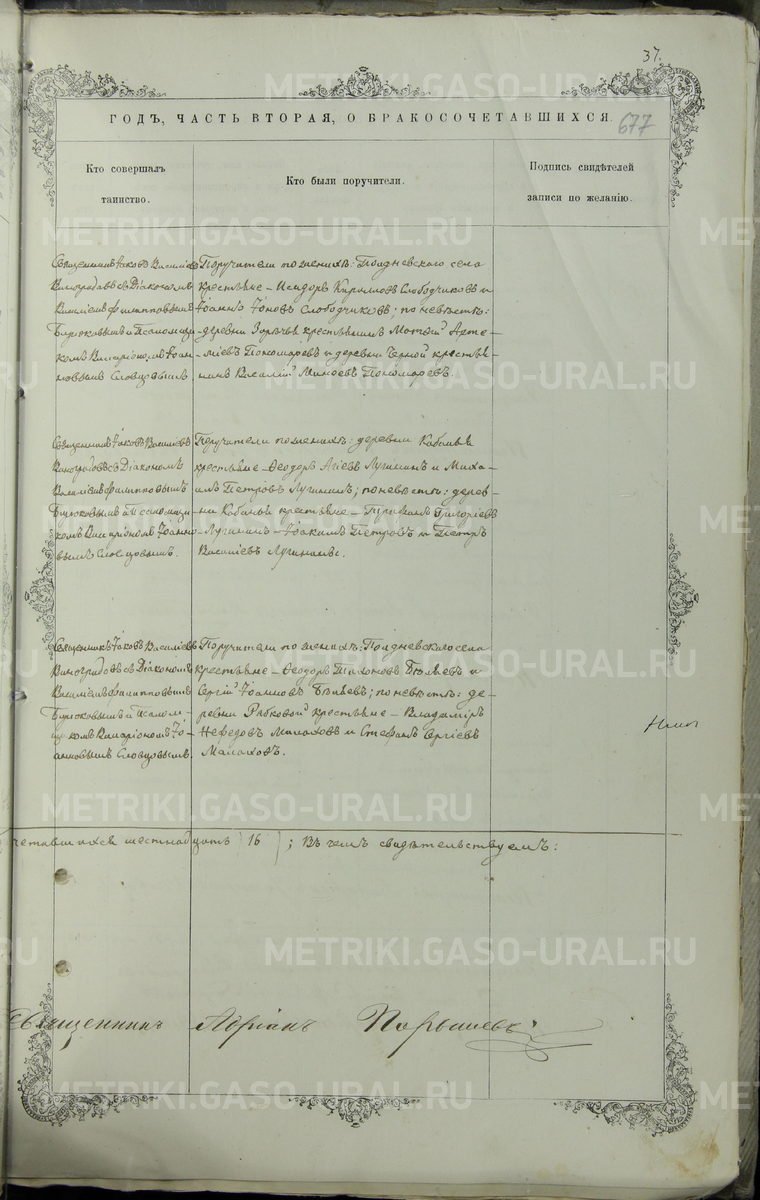 37.
ГОДЪ, ЧАСТЬ ВТОРАЯ, О БРАКОСОЧЕТАВШИХСЯ.
677
Кто совершалъ
таинство.
Кто были поручители.
Подпись свидѣтелей
записи по желанію.
Священникъ Іаковъ Василіевъ
Виноградовъ съ Діакономъ
Василіемъ Филипповымъ
Бирюковымъ и Псаломщи-
комъ Иларіономъ Іоан-
новымъ Словцовымъ.
Поручители по женихѣ: Поздневскаго села
крестьяне – Исидоръ Кирилловъ Слободчиковъ и
Іоаннъ Іоновъ Слободчиковъ; по невѣстѣ:
деревни Зарѣчья крестьянинъ Матѳей Арте-
міевъ Пономаревъ и деревни Черной крестья-
нинъ Василій Миноевъ Пономаревъ.
Священникъ Іаковъ Василіевъ
Виноградовъ съ Діакономъ
Василіемъ Филипповымъ
Бирюковымъ и Псаломщи-
комъ Иларіономъ Іоанно-
вымъ Словцовымъ.
Поручители по женихѣ: деревни Кабаньи
крестьяне – Ѳеодоръ Агіевъ Лузининъ и Миха-
илъ Петровъ Лузининъ; по невѣстѣ: дерев-
ни Кабаньи крестьяне – Григоріевъ
Лузининъ – Іоакимъ Петровъ и Петръ
Василіевъ Лузинины.
Священникъ Іаковъ Василіевъ
Виноградовъ съ Діакономъ
Василіемъ Филипповымъ
Бирюковымъ и Псалом-
щикомъ Иларіономъ Іо-
анновымъ Словцовымъ.
Поручители по женихѣ: Поздневскаго села
крестьяне – Ѳеодоръ Тихоновъ Бѣляевъ и
Сергій Іоанновъ Бѣляевъ; по невѣстѣ: де-
ревни Рябковой крестьяне – Владиміръ
Нефедовъ Малаховъ и Стефанъ Сергіевъ
Малаховъ.
четавшихся шестнадцать (16); въ чемъ свидѣтельствуемъ:
Священникъ Адріанъ
METRIKI.GASO-URAL.RU